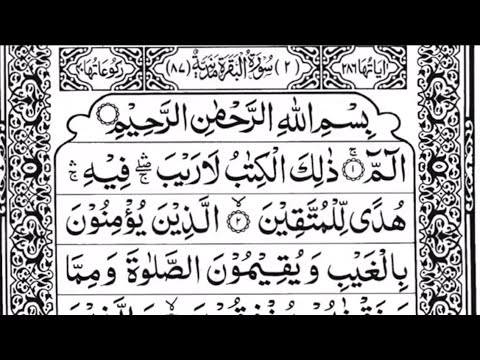 اٰیَاتُهَا ۲۸۶ (۲) سُوْرَةُ الْبَقَرَةِ مَدَنِیَّةٌ (۸۷) رُكُوْعَاتُهَا
بِسْمِ اللّٰهِ الرَّحْمٰنِ الرَّحِیْمِ
الٓمّٓ ۚ‏ ۱ ذٰلِكَ الْكِتٰبُ لَا رَیْبَ ۛۖۚ فِیْهِ ۛۚ
هُدًی لِّلْمُتَّقِیْنَ ۙ ۲ الَّذِیْنَ یُؤْمِنُوْنَ
بِالْغَیْبِ وَ یُقِیْمُوْنَ الصَّلٰوةَ وَ مِمَّا